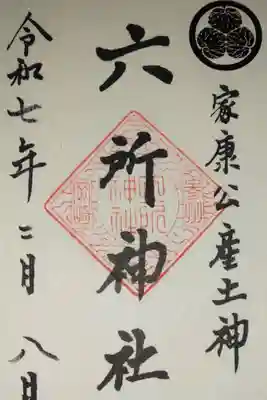 家康公産土神
六所神社
令和七年二月八日